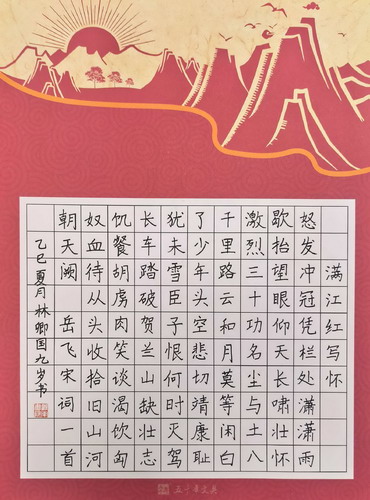 满江红写怀
怒发冲冠凭栏处潇潇雨
歇抬望眼仰天长啸壮怀
激烈三十功名尘与土八
千里路云和月莫等闲白
了少年头空悲切靖康耻
犹未雪臣子恨何时灭驾
长车踏破贺兰山缺壮志
饥餐胡虏肉笑谈渴饮匈
奴血待从头收拾旧山河
朝天阙 岳飞宋词一首
乙巳夏月林卿国九岁书